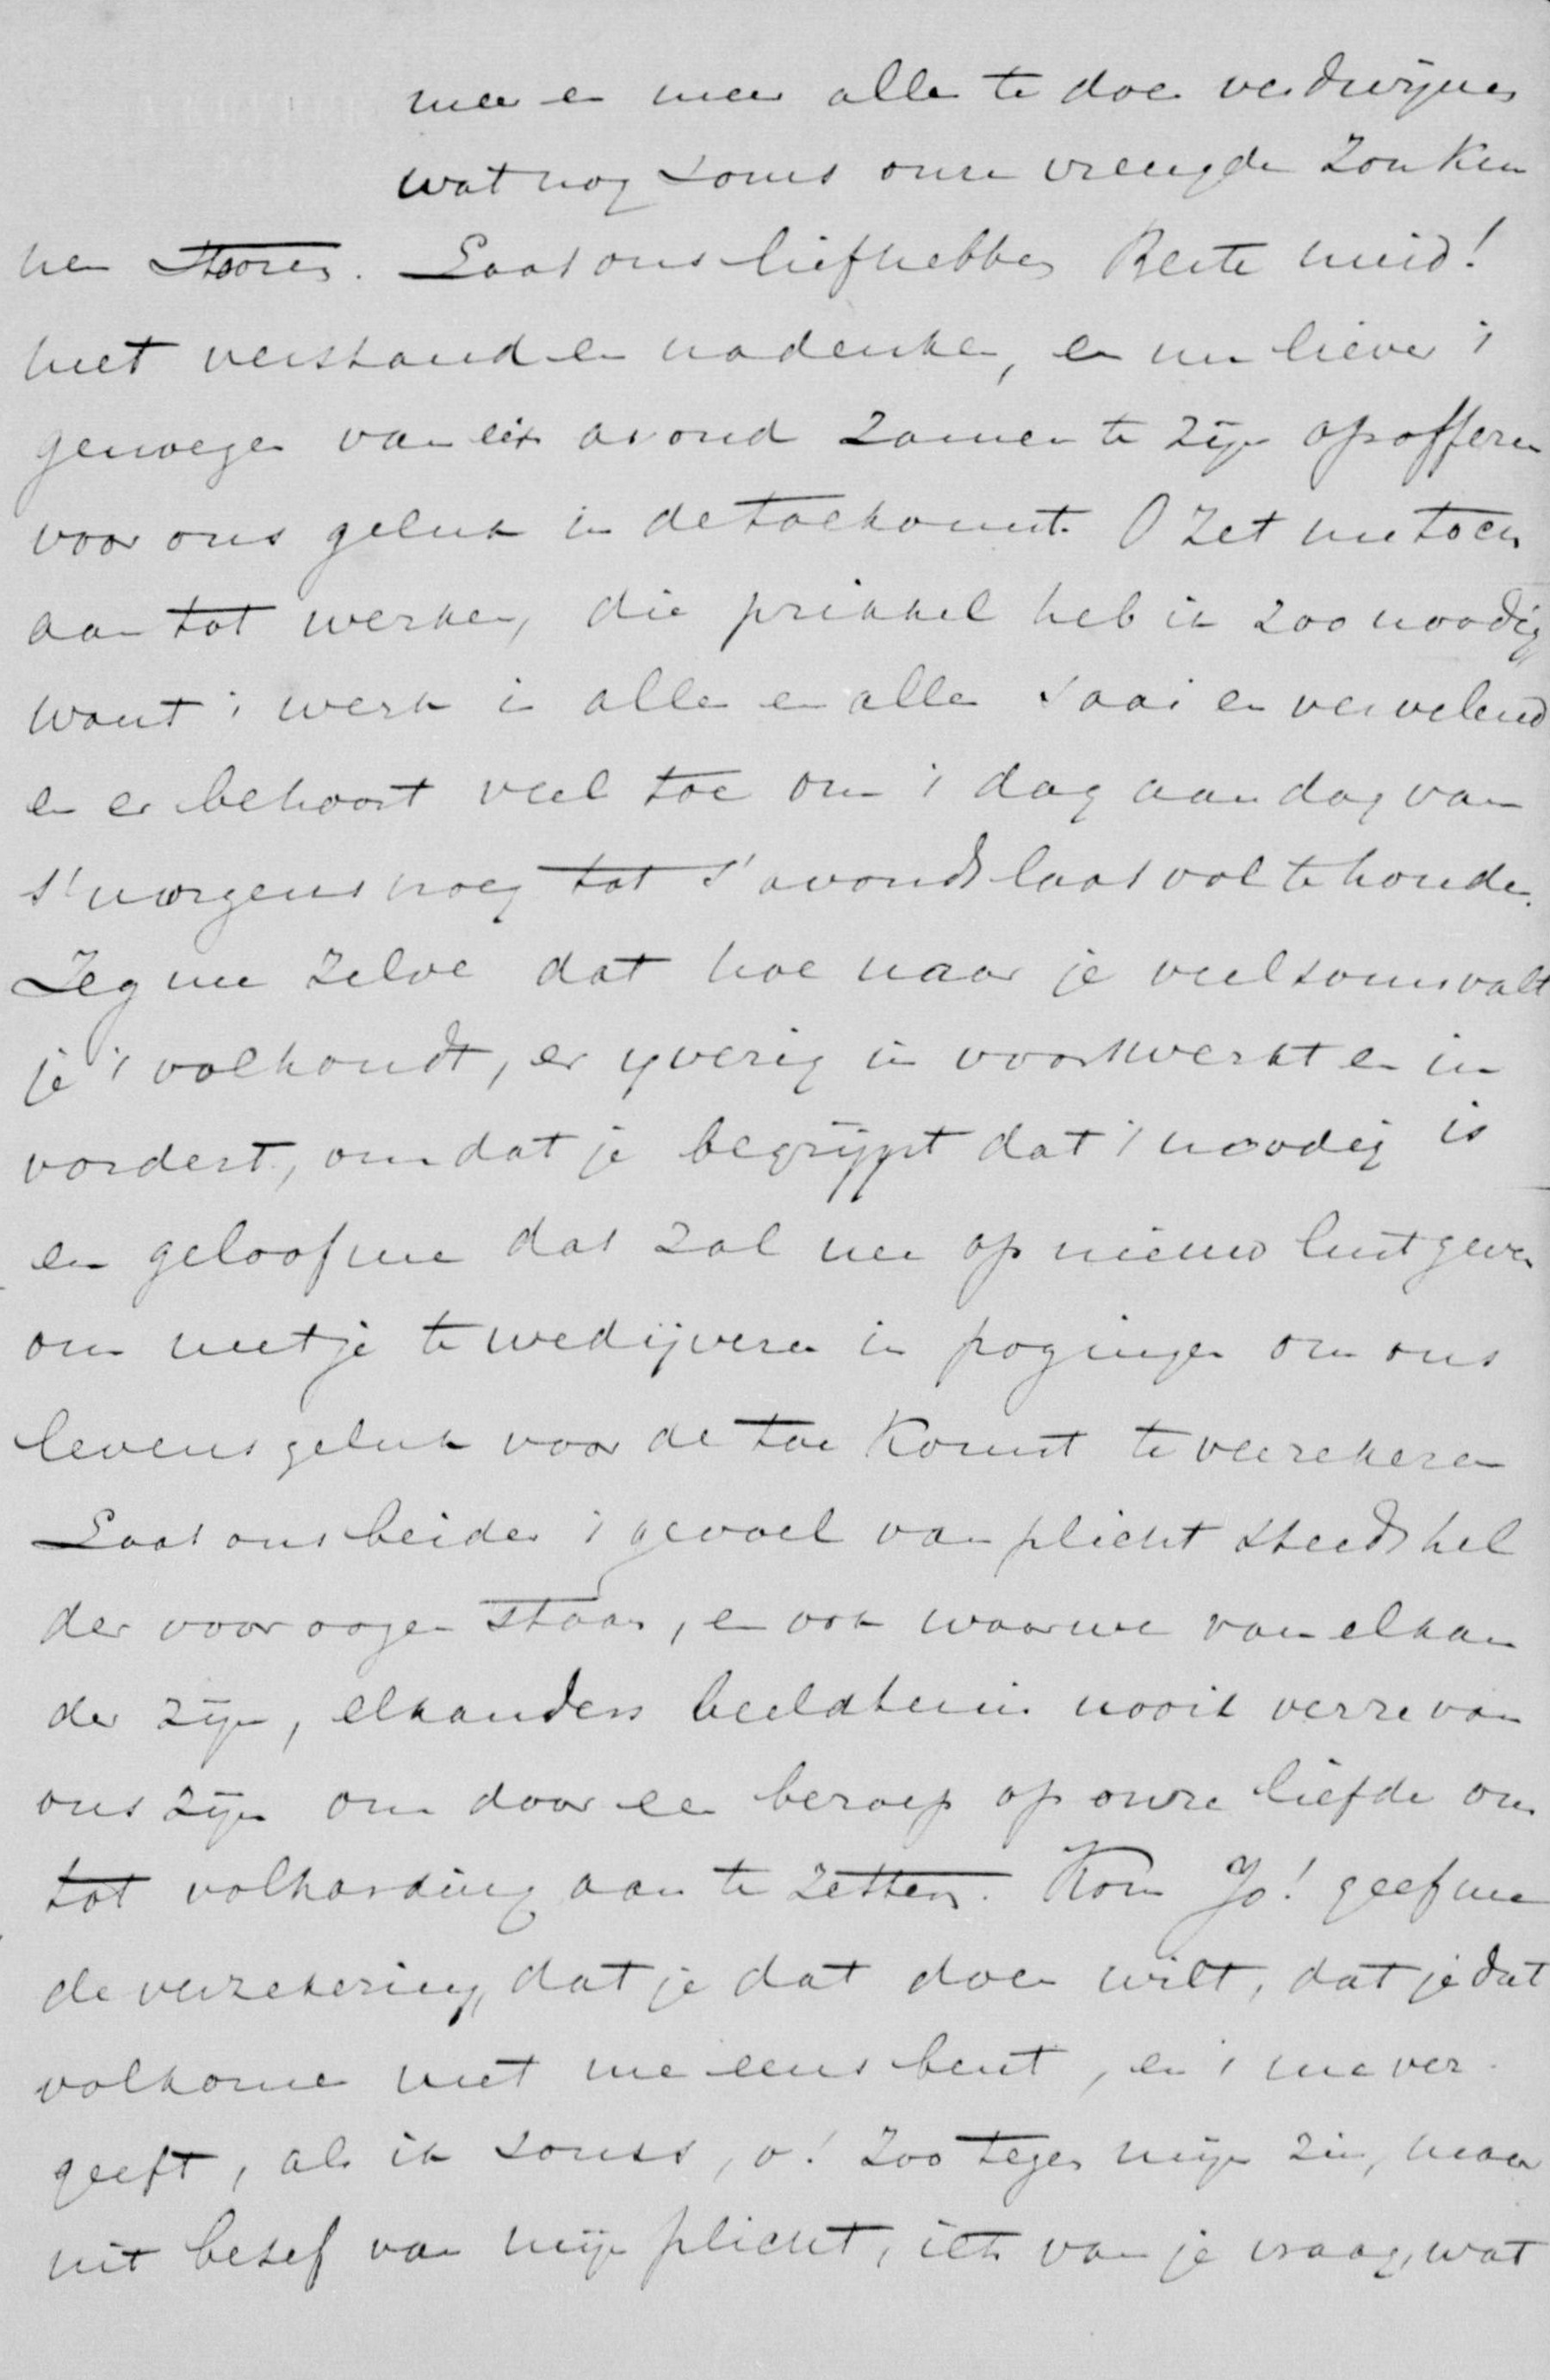 meer en meer alles te doen verdwijnen
wat nog soms onze vreugde zou kun
nen storen. Laat ons liefhebben Beste meid!
met verstand en nadenken, en nu liever 't
genoegen van één avond zamen te zijn opofferen
voor ons geluk in de toekomst. O zet me toch
aan tot werken, die prikkel heb ik zoo noodig
want 't werk is alles en alles saai en vervelend
en er behoort veel toe om 't dag aan dag van
s'morgens vroeg tot s'avonds laat vol te houden.
Zeg me zelve dat hoe naar je veel soms valt
je 't volhoudt, er yverig in voortwerkt en in
vordert, omdat je begrijpt dat 't noodig is
en geloof me dat zal me op nieuw lust geven
om met je te wedijveren in pogingen om ons
levensgeluk voor de toekomst te verzekeren
Laat ons beiden 't gevoel van plicht steeds hel
der voor oogen staan, en ook waar we van elkan
der zijn, elkanders beeldtenis nooit verre van
ons zijn om door een beroep op onze liefde ons
tot volharding aan te zetten. Kom Jo! geef me
de verzekering, dat je dat doen wilt, dat je dat
volkomen met me eens bent, en 't me ver-
geeft, als ik soms, o! zoo tegen mijn zin, maar
uit besef van mijn plicht, iets van je vraag, wat